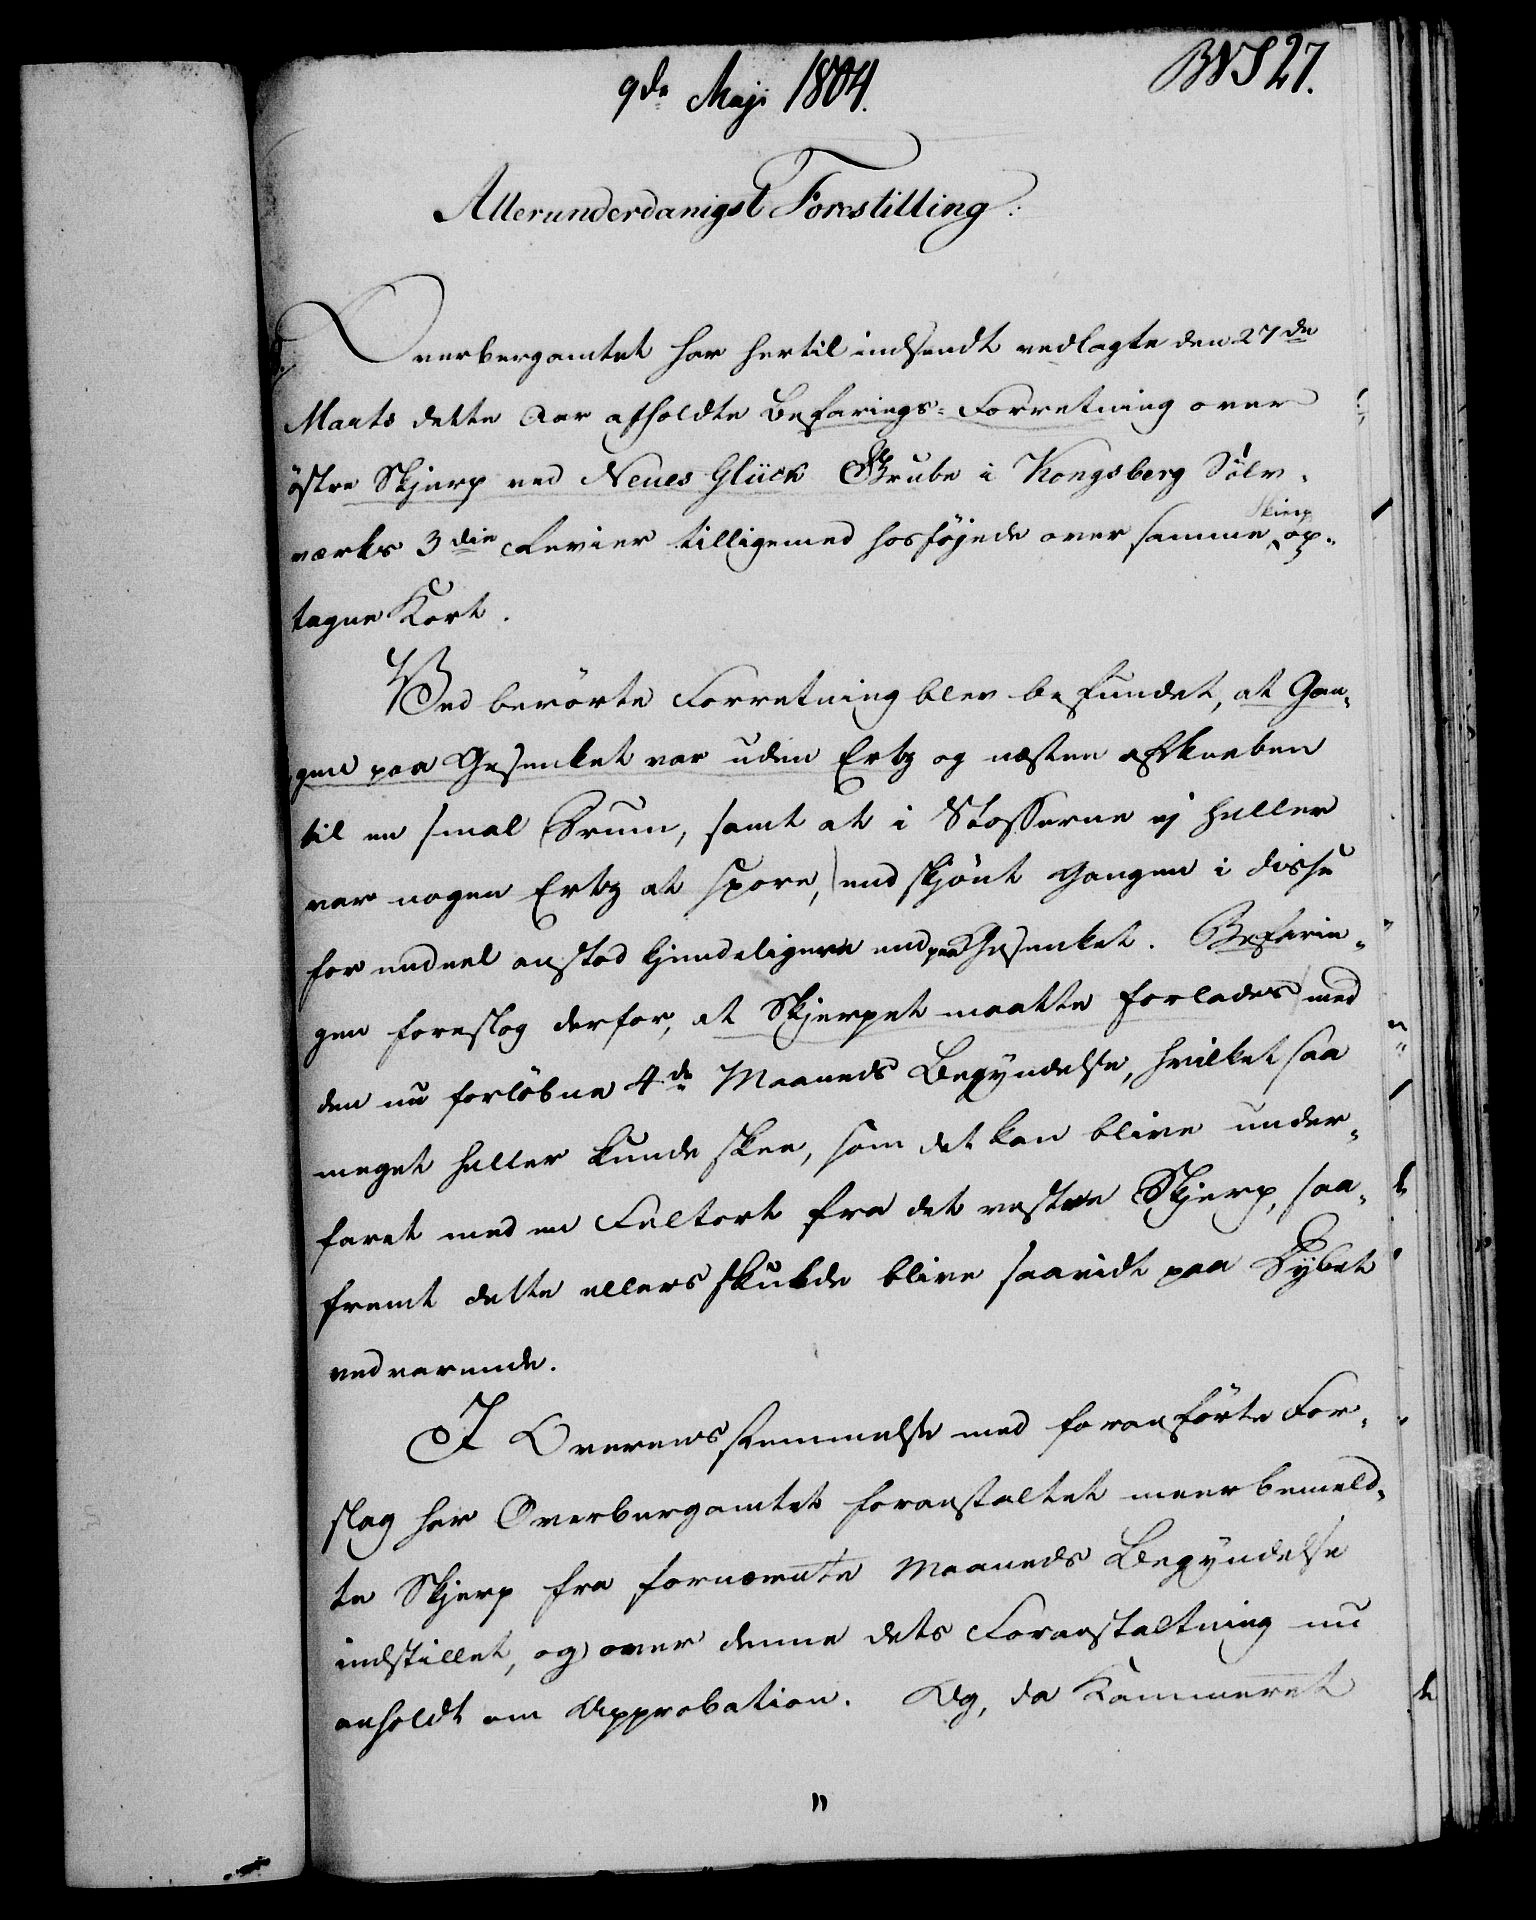 9de Maji 1804.
BVS 27.
Allerunderdanigst Forestilling:
Overbergamtet har hertil indsendt vedlagte den 27de
Marts dette Aar afholdte Befarings-Forretning over
östre Skjerp ved Neues Glück Grube i Kongsberg Sölv-
værks 3die Revier tilligemed hosföjede over samme Skjerp op-
tagne Kort.
Ved berörte Forretning blev befundet, at Gan-
gen paa Gesenket var uden Ertz og næsten afskaaben
til en smal Trum, samt at i Stosserne ej heller
var nogen Ertz at spore, endskjönt Gangen i disse
for endeel anstod kjendeligere end paa Gesenket. Befarin-
gen foreslog derfor, at Skjerpet maatte forlades med
den nu forlöbne 4de Maaneds Begyndelse, hvilket saa
meget heller kunde skee, som det kan blive under-
faret med en Feltort fra det vestre Skjerp, saa-
fremt dette ellers skulde blive saavidt paa Dybet
vedvarende.
I Overensstemmelse med foranförte For-
slag har Overbergamtet foranstaltet meerbemeld-
te Skjerp fra fornævnte Maaneds Begyndelse
indstillet, og over denne dets Foranstaltning nu
anholdt om Approbation. Og, da Kammeret